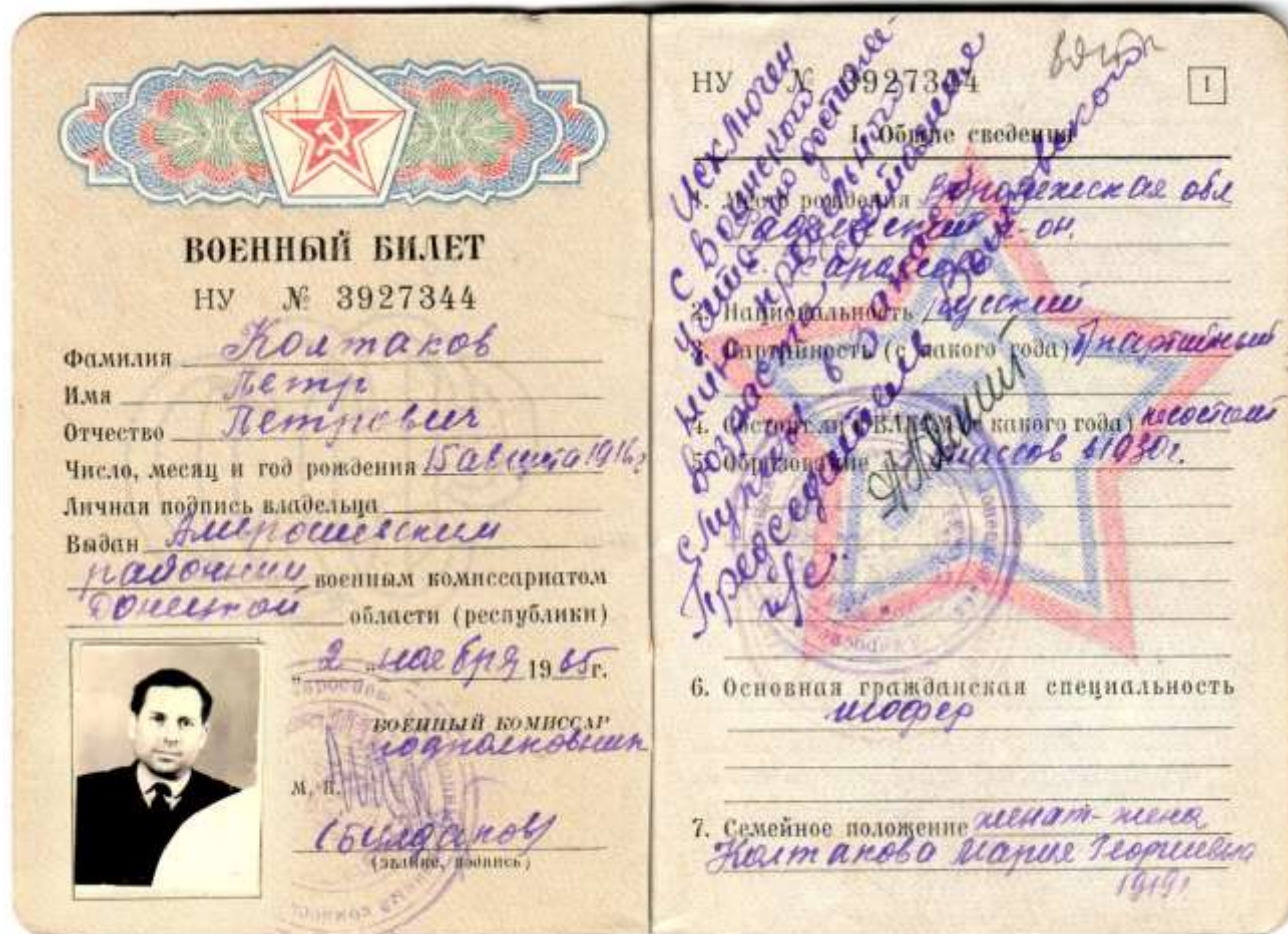 ВОЕННЫЙ БИЛЕТ
НУ № 3927344
Фамилия Колтаков
Имя Петр
Отчество Петрович
Число, месяц и год рождения 15 августа 1916 г
Личная подпись владельца
Выдан Амвросиевским
районным военным комиссариатом
Донецкой области (республики)
"2" ноября 1965г.
ВОЕННЫЙ КОМИССАР
подполковник
М. П.
(звание, подпись)
НУ № 3927344
1
I. Общие сведения
1. Место рождения Воронежская обл
р-он.
2. Национальность русский
3. Партийность (с какого года) б/партийный
4. Состоит ли в ВЛКСМ (с какого года) не состоит
5. Образование классов в 1930г.
6. Основная гражданская специальность
шофер
7. Семейное положение женат - жена
Колтакова Мария Георгиевна
1919г
Исключен
с воинского
учета по достижении
предельного
возраста состояния
в запасе
Председатель